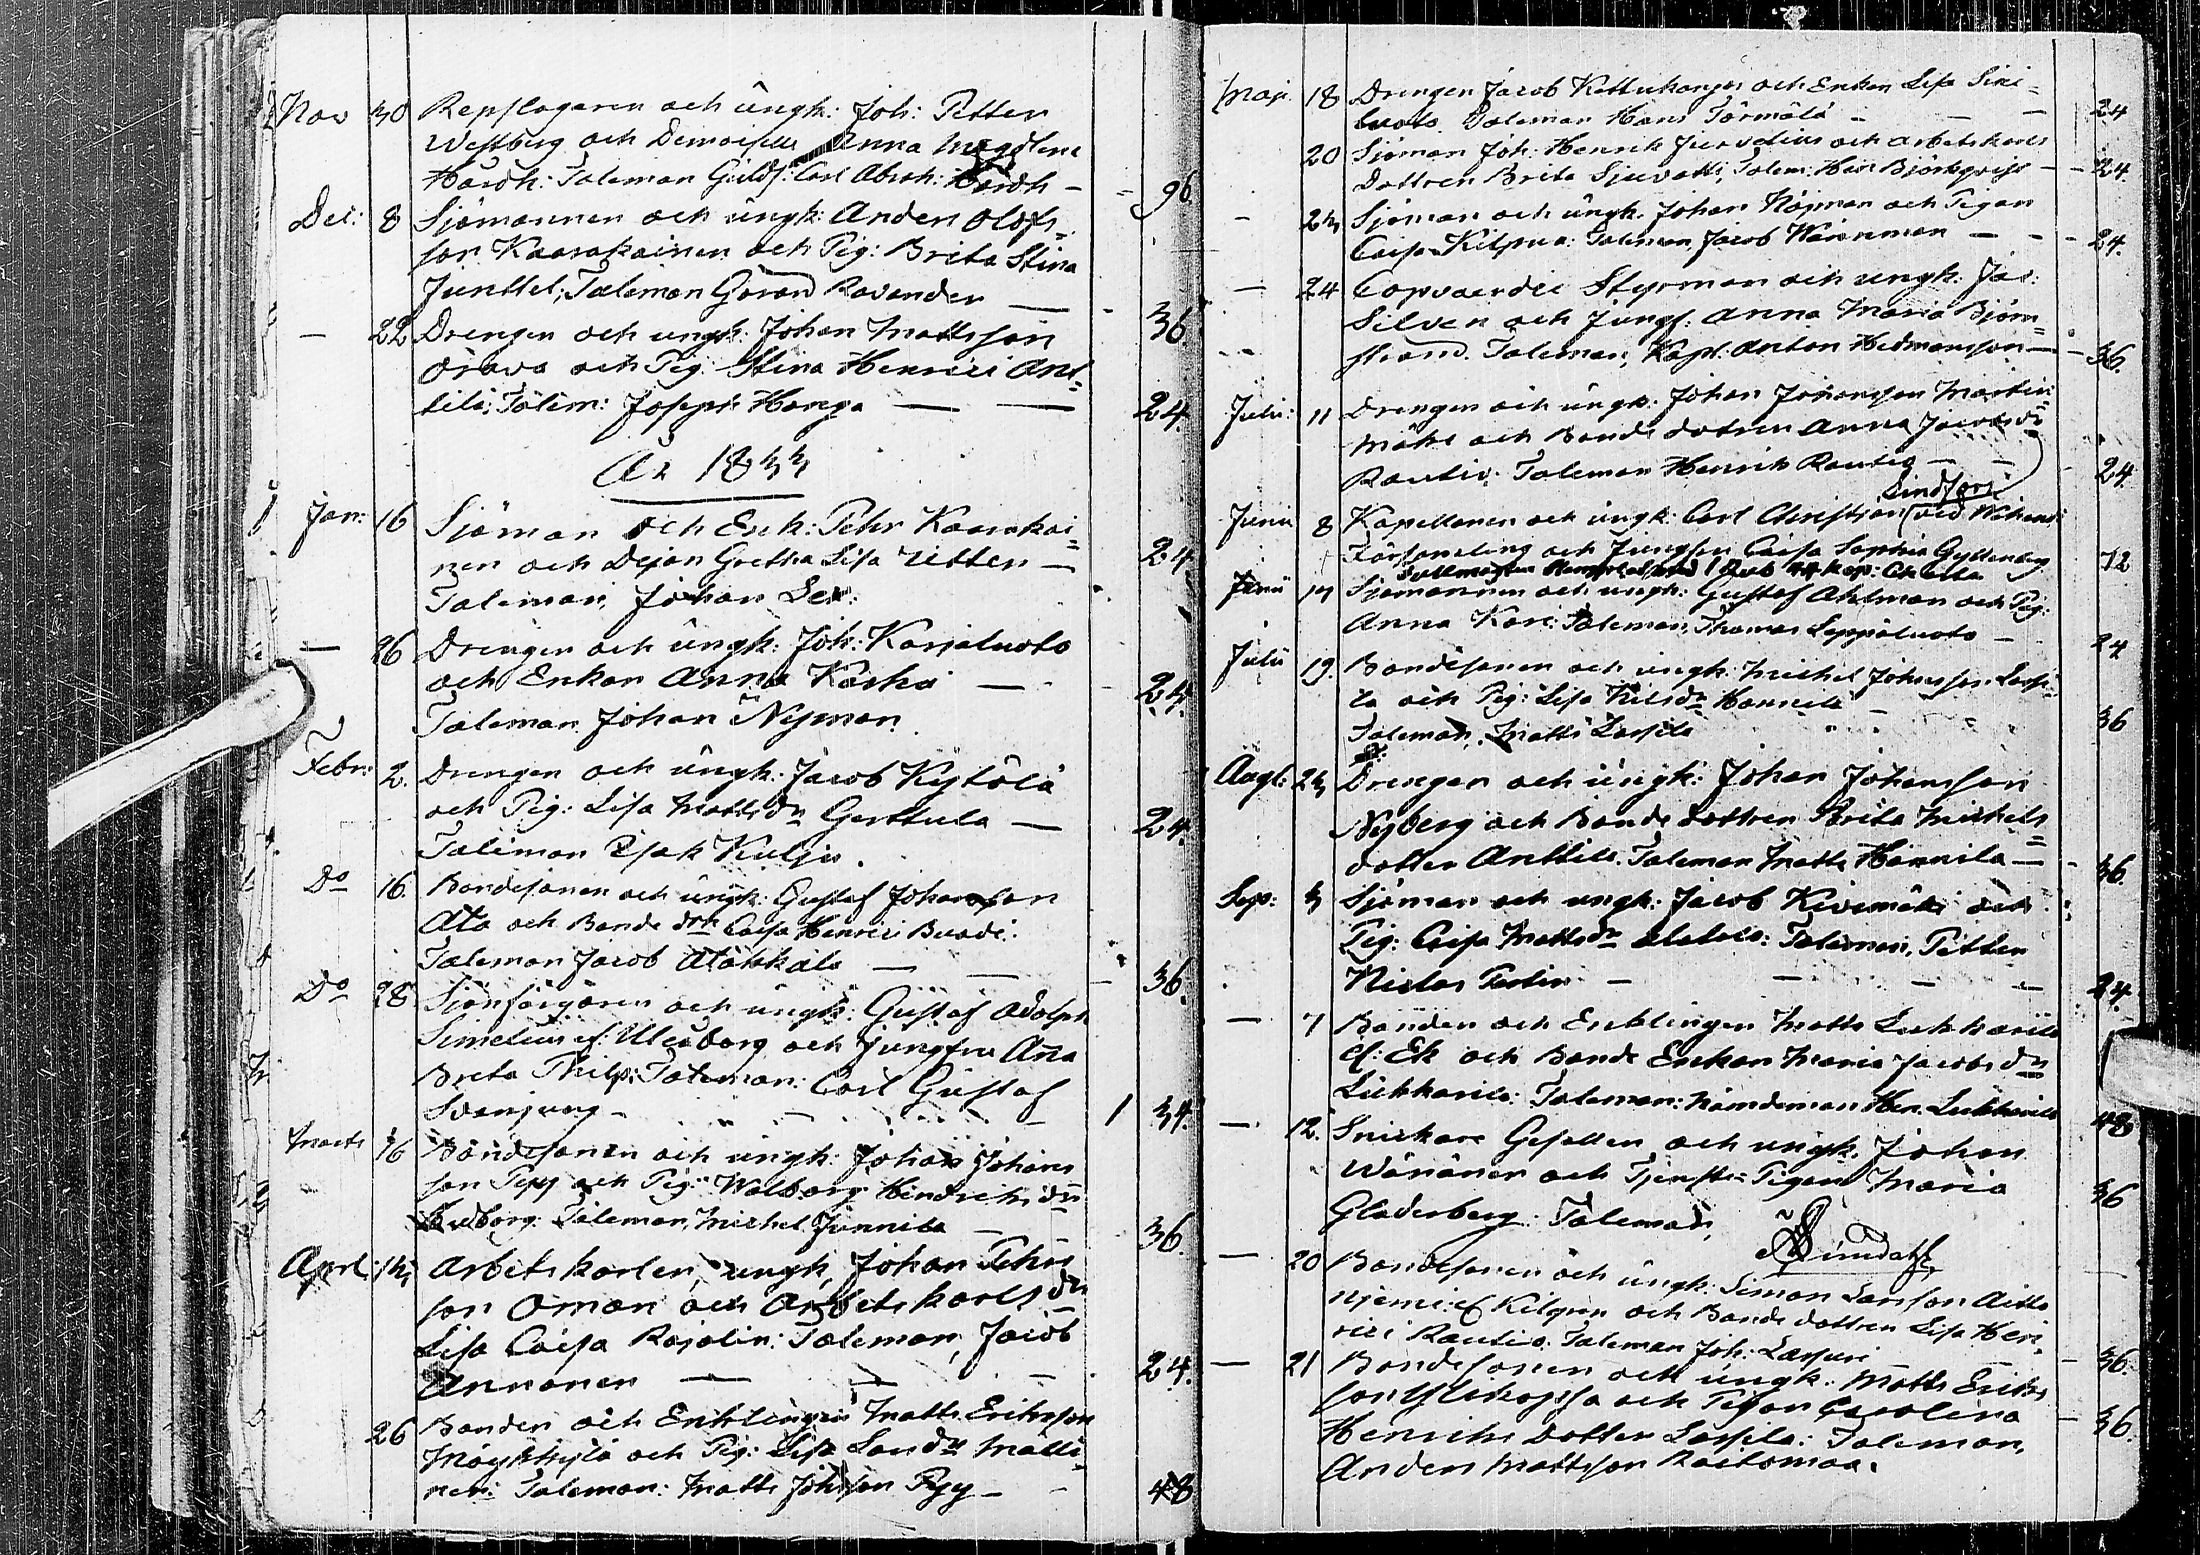 Nov 30 Repslagaren och ungk: Joh: Petter
Westberg och Demoiselle Anna Magdlena
Hårdh: Taleman Guldf: Carl Abrah: Hårdh – 96.
Dec: 8 Sjömannen och ungk: Anders Olofs=
son Kaarakainen och Pig: Brita Stina
Junttel; Taleman Göran Ravander — 36
— 22 Drengen och ungk. Johan Mattsson
Orava och Pig: Stina Henrici Ant=
tila; Talem: Joseph Hanga — — 24.
År 1844
Jan: 16 Sjöman och Enk: Pehr Kaarakai
nen och Dejan Gretha Lisa Utter — 24
Taleman, Johan
— 26 Drengen och ungk: Joh: Karjaluoto
och Enkan Anna Karhu — 24.
Taleman Johan Nyman.
Febr: 2. Drengen och ungk: Jacob Kytölä
och Pig: Lisa Mattsdr Gerttula — 24.
Taleman Isak Kulju.
Do 16. Bondesonen och ungk: Gustaf Johansson
Ala och Bonde dotr Caisa Henrici
Taleman Jacob Alakkala — — 36.
Do 28 och ungk: Gustaf Adolph
Simelius ef: Uleåborg och jungfru Ana
Brita Philp: Taleman: Carl Gustaf
Svanjung – 1 34.
Marti 16 Bondesonen och ungk: Johan Johans
son Pyy och Pig: Walborg Hindrichs dr
Taleman, Michel Junnila — 36.
Aprl: 14 Arbetskarlen, ungk, Johan Pehrs
son Öman och Arbetskarls dr
Lisa Caisa Rajalin: Taleman, Jacob
Annanen — — – 24.
26 Bonden och Enklingen Matts Eriksson
Mäykkylä och Pig: Lisa Lars dr Matti
nen: Taleman: Matts Johsson Pyy – 48
Maji 18 Drengen Jacob Kattukangas och Enkan Lisa Sini=
luoto. Taleman Hans Törmälä – – 24
20 Sjöman Joh: Henrik och arbetskarls
Dottren Brita Talem: Henr Björkqvist – – 24.
– 24 Sjöman och ungk. Johan Nöjman och Pigan
Caisa Kilpua: Taleman, Jacob Wäänänen – – 24.
— 24 Copvaerdie Styrman och ungk: Jac:
Silven och Jungf: Anna Maria Björn=
strand. Taleman, Kapt: Anton Hedmansson – – 36.
Juli: 11 Drengen och ungk: Johan Johansson Martin
mäki och Bonde dotren Anna Jacobs dr
Rautio. Taleman Henrik Rautio – – 24.
Lindfors
Junii 8 Kapellanen och ungk: Carl Christian (vid Wihanti
Församling och Jungfru Caisa Sophia Gyllenberg 72
Junii 14 Sjömannen och ungk: Gustaf Ahlman och Pig:
Anna Kari: Taleman, Thomas Leppäluoto – 24
Julii 19. Bondesonen och ungk: Michel Johansson Lassi
la och Pig: Lisa Nilsdr Hannila –
Taleman, Matts Lassila 36
Augt: 24 Drengen och ungk: Johan Johansson
Nyberg och Bonde dottren Brita Michels=
dotter Anttila. Taleman Matts Hannila – – 36.
Sep: 4 Sjöman och ungk: Jacob Kivimäki och
Pig: Caisa Matts dr Taleman, Petter
Niclas Festin – – – – 24.
— 7 Bonden och Enklingen Matts Lukkarila
ef: Ek och Bonde Enkan Maria Jacobs dr
Lukkarila: Taleman: Nämdeman Hen: Lukkarila 48
— 12. Snickare Gesellen och ungk. Johan
Wänänen och Tjenste-Pigan Maria
Gladerberg: Taleman, Sundahl 36
— 20 Bondesonen och ungk: Simon Larsson Aitta
niemi: ef Kilpua och Bonde dottren Lisa Hen
rici Rautio. Taleman Joh: Lassuri – – 36.
— 21 Bondesonen och ungk: Matts Eriks
son Ylikoppsa och Pigan Carolina
Henriks Dotter Lassila: Taleman, – 36.
Anders Mattsson Raitomaa.